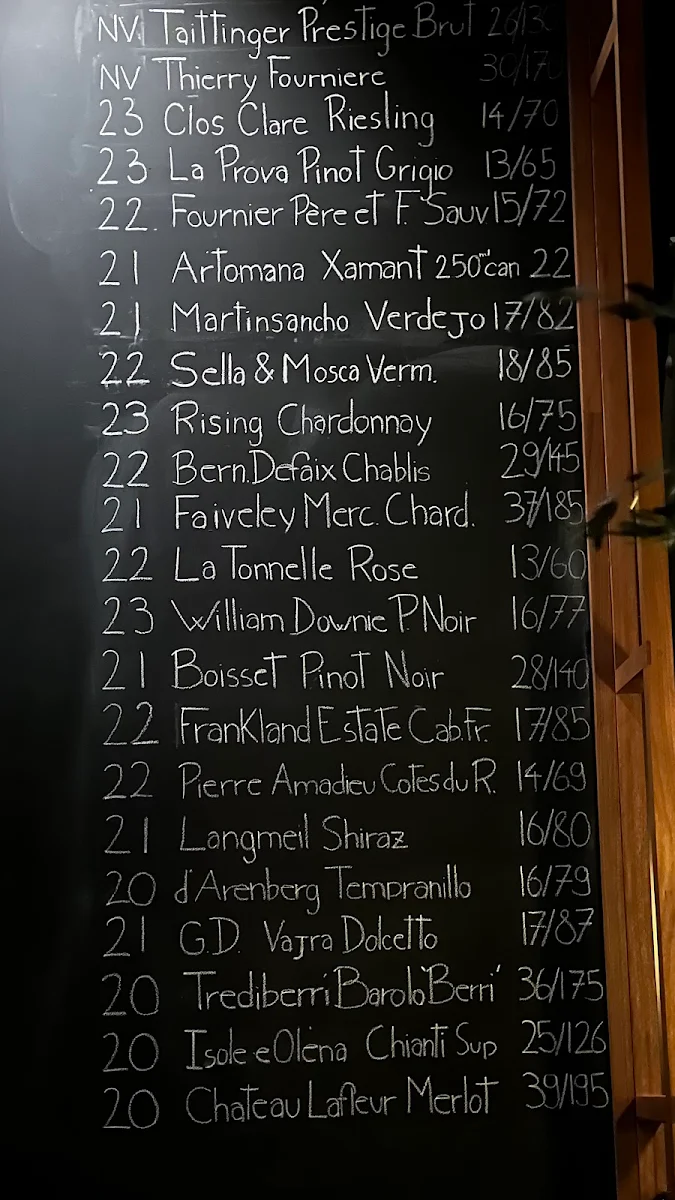 NV. Taittinger Prestige Brut 26/130
NV Thierry Fourniere 30/170
23 Clos Clare Riesling 14/70
23 La Prova Pinot Grigio 13/65
22. Fournier Père et F. Sauv 15/72
21 Artomana Xamant 250ml can 22
21 Martinsancho Verdejo 17/82
22 Sella & Mosca Verm. 18/85
23 Rising Chardonnay 16/75
22 Bern. Defaix Chablis 29/145
21 Faiveley Merc. Chard. 37/185
22 La Tonnelle Rose 13/60
23 William Downie P. Noir 16/77
21 Boisset Pinot Noir 28/140
22 Frankland Estate Cab. Fr. 17/85
22 Pierre Amadieu Cotes du R. 14/69
21 Langmeil Shiraz 16/80
20 d'Arenberg Tempranillo 16/79
21 G.D. Vajra Dolcetto 17/87
20 Trediberri Barolo 'Berri' 36/175
20 Isole e Olena Chianti Sup 25/126
20 Chateau Lafleur Merlot 39/195